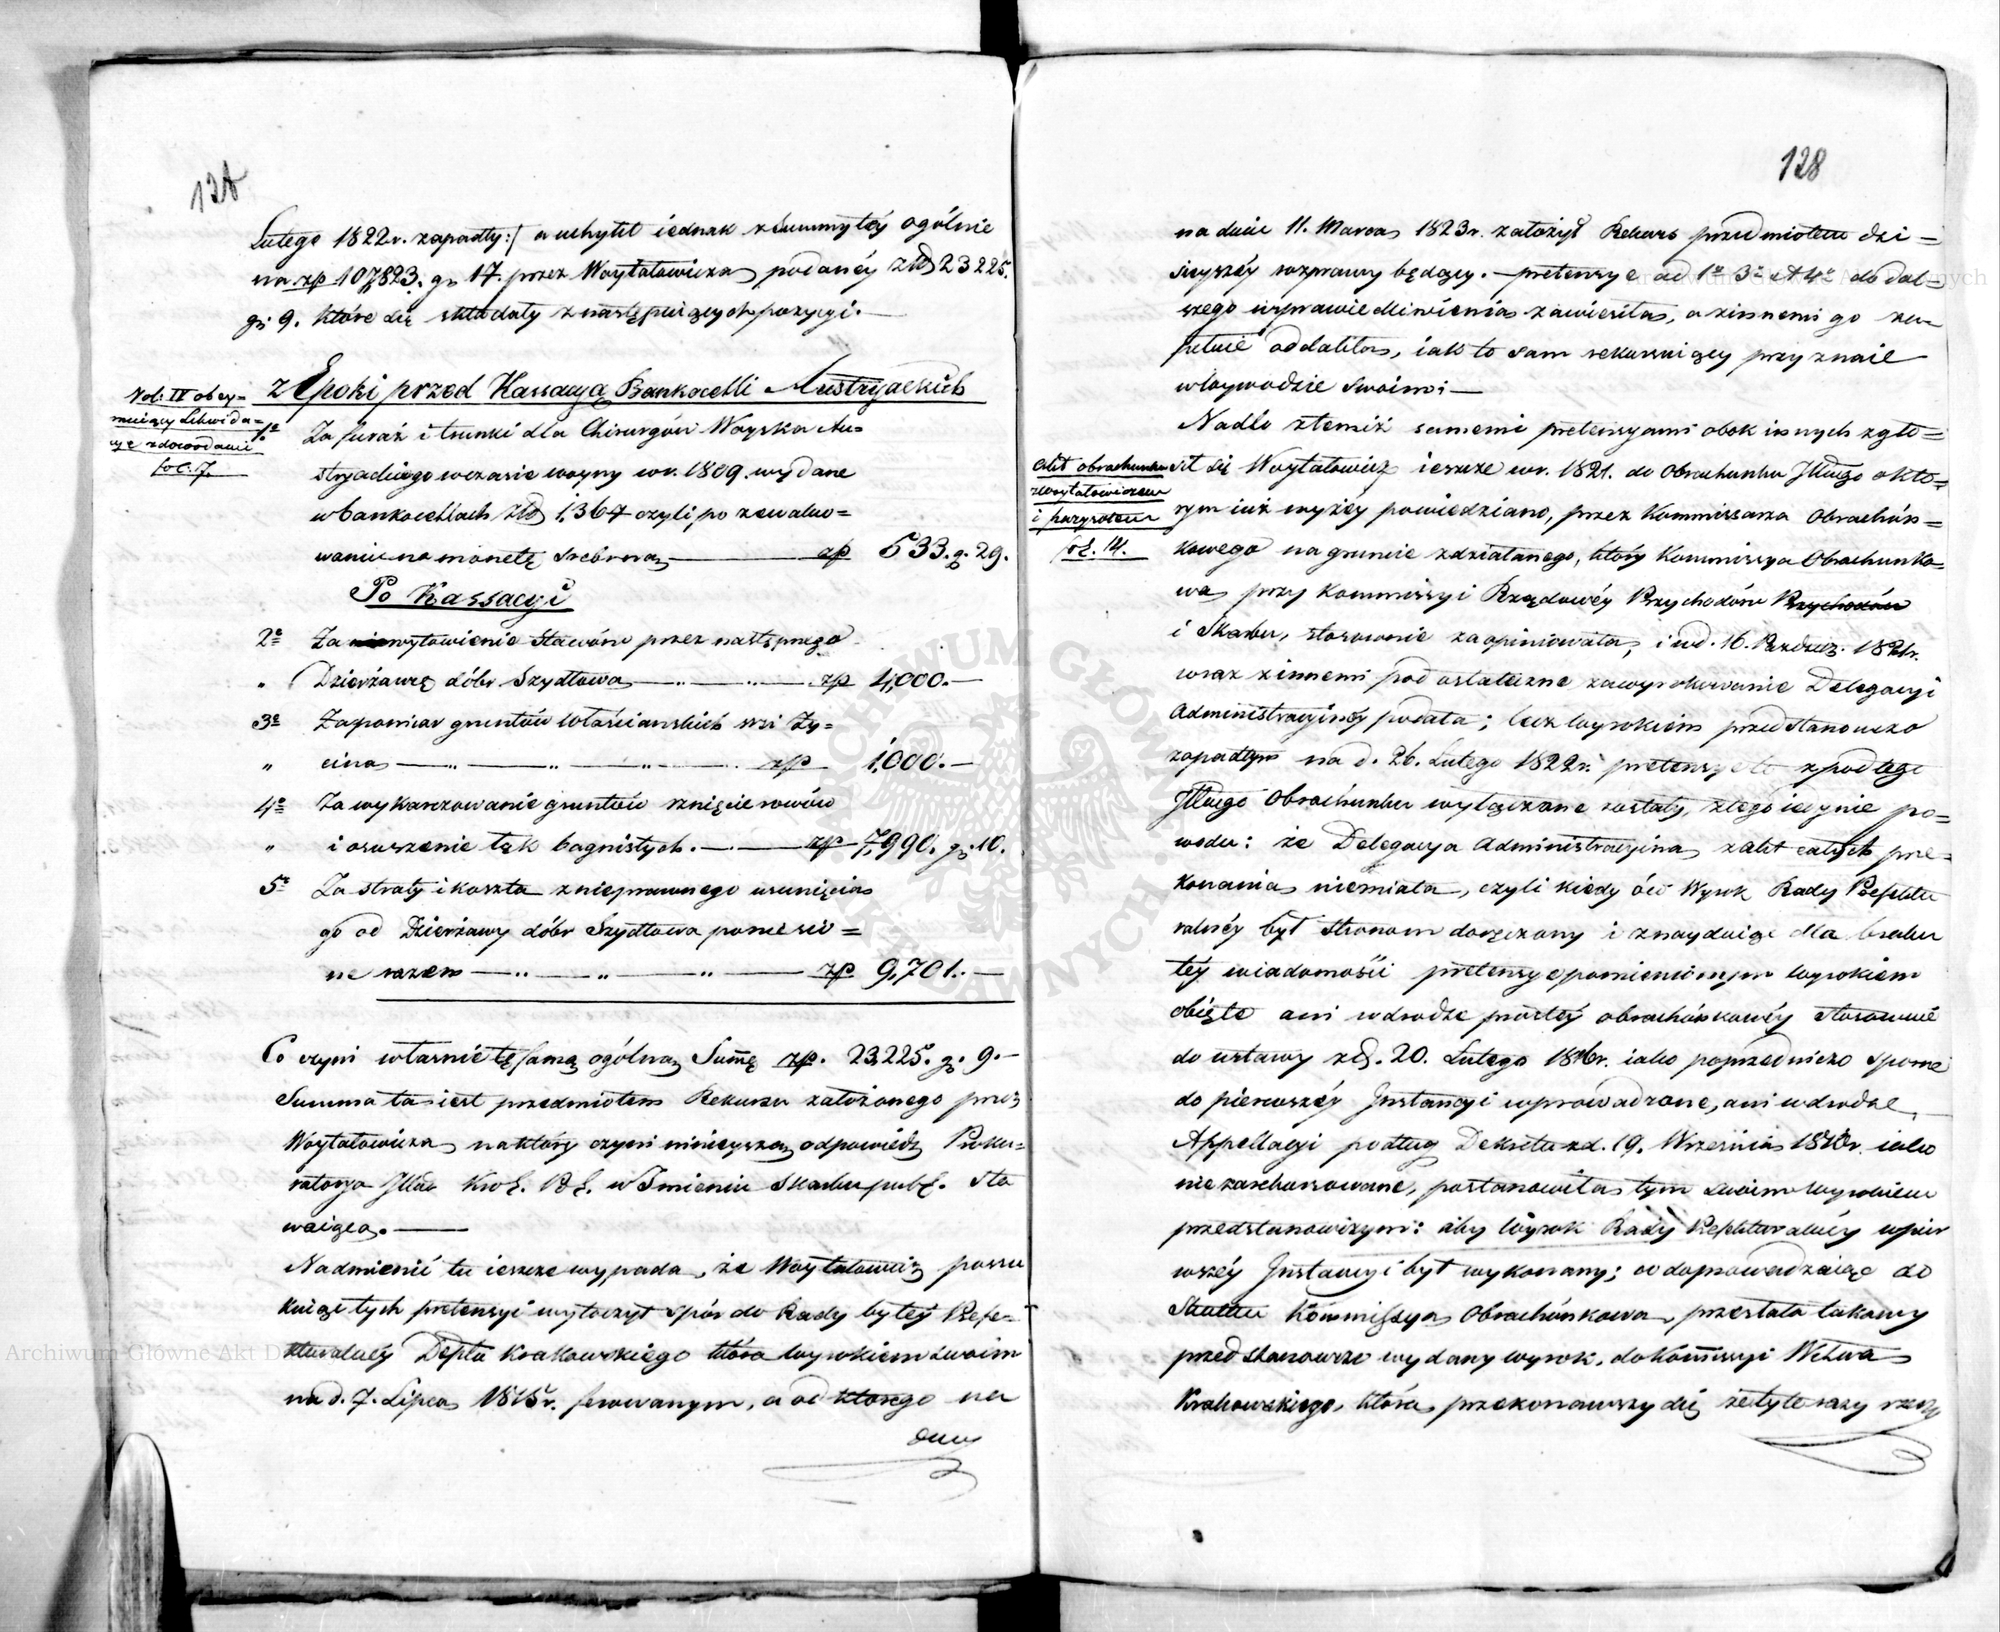 128
Lutego 1822r. zapadły:/ a uchylił iednak z Summy téy ogólnie
na zp 107,823. gr 17. przez Woytałowicza podanéy złp 23225.
gr 9. które się składały z następuiących pozycyi.—
z Epoki przed Kassacyą Bankocetli Austryackich
Vol: IV obey=
muiący Likwida=
cyę z dowodami
fol. 7.
1o Za furaż i trunki dla Chirurgów Woyska Au=
stryackiego w czasie woyny w r. 1809. wydane
w bankocetlach złp 1,364 czyli po zewalwo=
waniu na monetę srebrną — zp 533. g. 29.
Po Kassacyi
2o Za niewyłowienie stawów przez następnego
" Dzierżawcę dóbr Szydłowa — " — " — zp 4,000.—
3o Za pomiar gruntów włościańskich wsi Ży=
" cina — " — " — " — zp 1,000.—
4o Za wykarczowanie gruntów rznięcie rowów
" i osuszenie łąk bagnistych. — " — zp 7,990. gr. 10.
5o Za straty i koszta z nieprawnego usunięcia
go od Dzierżawy dóbr Szydłowa poniesio=
ne razem — " — " — " — zp 9,701.—
Co czyni właśnie tę samą ogólną Summę zp. 23225. g. 9.—
Summa ta iest przedmiotem Rekursu założonego przez
Woytałowicza na który czyni ninieyszą odpowiedź Proku=
ratorya Król. Pol. w Imieniu Skarbu publ. sta
waiąca.—
Nadmienić tu ieszcze wypada, że Woytałowicz poszu
kuiąc tych pretensyi wytoczył spór do Rady byłey Prefe=
kturalnéy Depta Krakowskiego która wyrokiem swoim
na d. 7. Lipca 1815r. ferowanym, a od którego na
dniu
128
na dniu 11. Marca 1823r. założył Rekurs przedmiotem dzi=
sieyszéy rozprawy będący.— pretensye ad 1o 3o et 4o do dal=
szego usprawiedliwienia zawiesiła, a z innemi go zu=
pełnie oddaliła, iak to sam rekursuiący przyznaie
w wywodzie swoim:—
Nadto z temiż samemi pretensyami obok innych zgło=
Akt obrachunku
z Woytałowiczem
fol. 14.
sił się Woytałowicz ieszcze w r. 1821. do Obrachunku o któ=
rym iuż wyżéy powiedziano, przez Kommissarza Obrachun=
kowego na gruncie zdziałanego, który Kommissya Obrachunko=
wa przy Kommissyi Rządowéy Przychodów Przychodów
i Skarbu, stosownie zaopiniowała, i w d. 16. Paździer. 1821r.
wraz z innemi pod ostateczne zawyrokowanie Delegacyi
Administracyinéy podała; lecz wyrokiem przedstanowczo
zapadłym na d. 26. Lutego 1822r. pretensye te z pod tego
Obrachunku wyłączone zostały, z tego iedynie po=
wodu: że Delegacya Administracyina z akt całych prze=
konania niemiała, czyli kiedy ów Wyrok Rady Prefektu
ralnéy był stronom doręczony i znayduiąc dla braku
téy wiadomości pretensye pomienionym wyrokiem
obięte ani w drodze prostéy obrachunkowéy stosownie
do ustawy z d. 20. Lutego 1816r. iako poprzedniczo sporne
do pierwszéy Instancyi wprowadzone, ani w drodze
Appellacyi podług Dekretu z d. 19. Września 1810r. iako
nie zarekursowane, postanowiła tym swoim wyrokiem
przedstanowczym: aby Wyrok Rady Prefekturalnéy w pier
wszéy Instancyi był wykonany; co doprowadzaiąc do
skutku Kommissya Obrachunkowa, przesłała takowy
przedstanowczo wydany wyrok, do Kommissyi Wdztwa
Krakowskiego, która przekonawszy się że tyle razy rzeczo